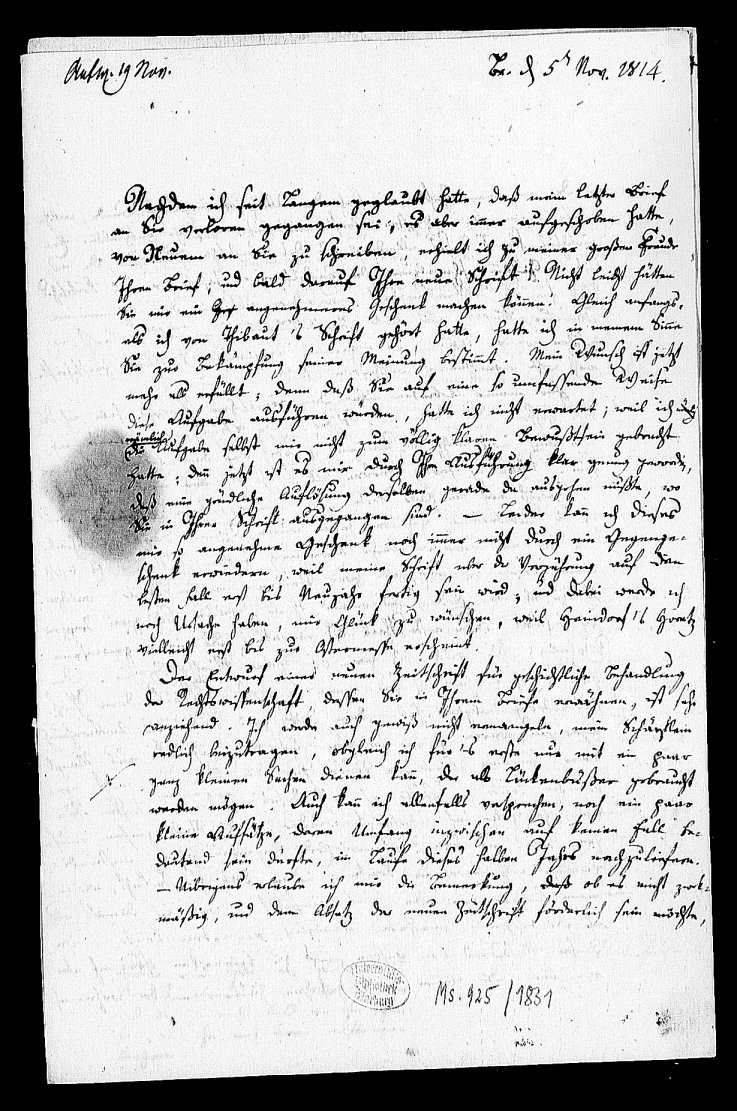 Antw. 19 Nov.
Br. d 5t Nov. 1814.
Nachdem ich seit Langem geglaubt hatte, daß mein letzter Brief
an Sie verloren gegangen sei, es aber immer aufgeschoben hatte,
von Neuem an Sie zu schreiben, erhielt ich zu meiner großen Freude
Ihren Brief, und bald darauf Ihre neue Schrift. Nicht leicht hätten
Sie mir ein angenehmeres Geschenk machen können. Gleich anfangs,
als ich von Thibaut's Schrift gehört hatte, hatte ich in meinem Sinne
Sie zur Bekämpfung seiner Meinung bestimmt. Mein Wunsch ist jetzt
mehr als erfüllt; denn daß Sie auf eine so umfassende Weise
diese Aufgabe ausführen würden, hatte ich nicht erwartet; weil ich
nämlich
die Aufgabe selbst mir nicht zum völlig klaren Bewußtsein gebracht
hatte; denn jetzt ist es mir durch Ihre Ausführung klar genug geworden,
daß eine gründliche Auflösung derselben gerade da ausgehen müßte, wo
Sie in Ihrer Schrift ausgegangen sind. — Leider kann ich dieses
mir so angenehme Geschenk noch immer nicht durch ein Gegenge-
schenk erwiedern, weil meine Schrift über die Verjährung auf den
besten Fall erst bis Neujahr fertig sein wird; und dabei werde ich
noch Ursache haben, mir Glück zu wünschen, weil Heindorf's Horatz
vielleicht erst bis zur Ostermesse erscheint.
Der Entwurf einer neuen Zeitschrift für geschichtliche Behandlung
der Rechtswissenschaft, dessen Sie in Ihrem Briefe erwähnen, ist sehr
anziehend. Ich werde auch gewiß nicht ermangeln, mein Schärflein
redlich beizutragen, obgleich ich für's erste nur mit ein paar
ganz kleinen Sachen dienen kann, die als Lückenbüßer gebraucht
werden mögen. Auch kann ich allenfalls versprechen, noch ein paar
kleine Aufsätze, deren Umfang inzwischen auf keinen Fall be-
deutend sein dürfte, im Laufe dieses halben Jahrs nachzuliefern.
— Uibrigens erlaube ich mir die Bemerkung, daß ob es nicht zweck-
mäßig, und dem Absatz der neuen Zeitschrift förderlich sein möchte,
Universitäts-
Bibliothek
Marburg
Ms. 925/1831